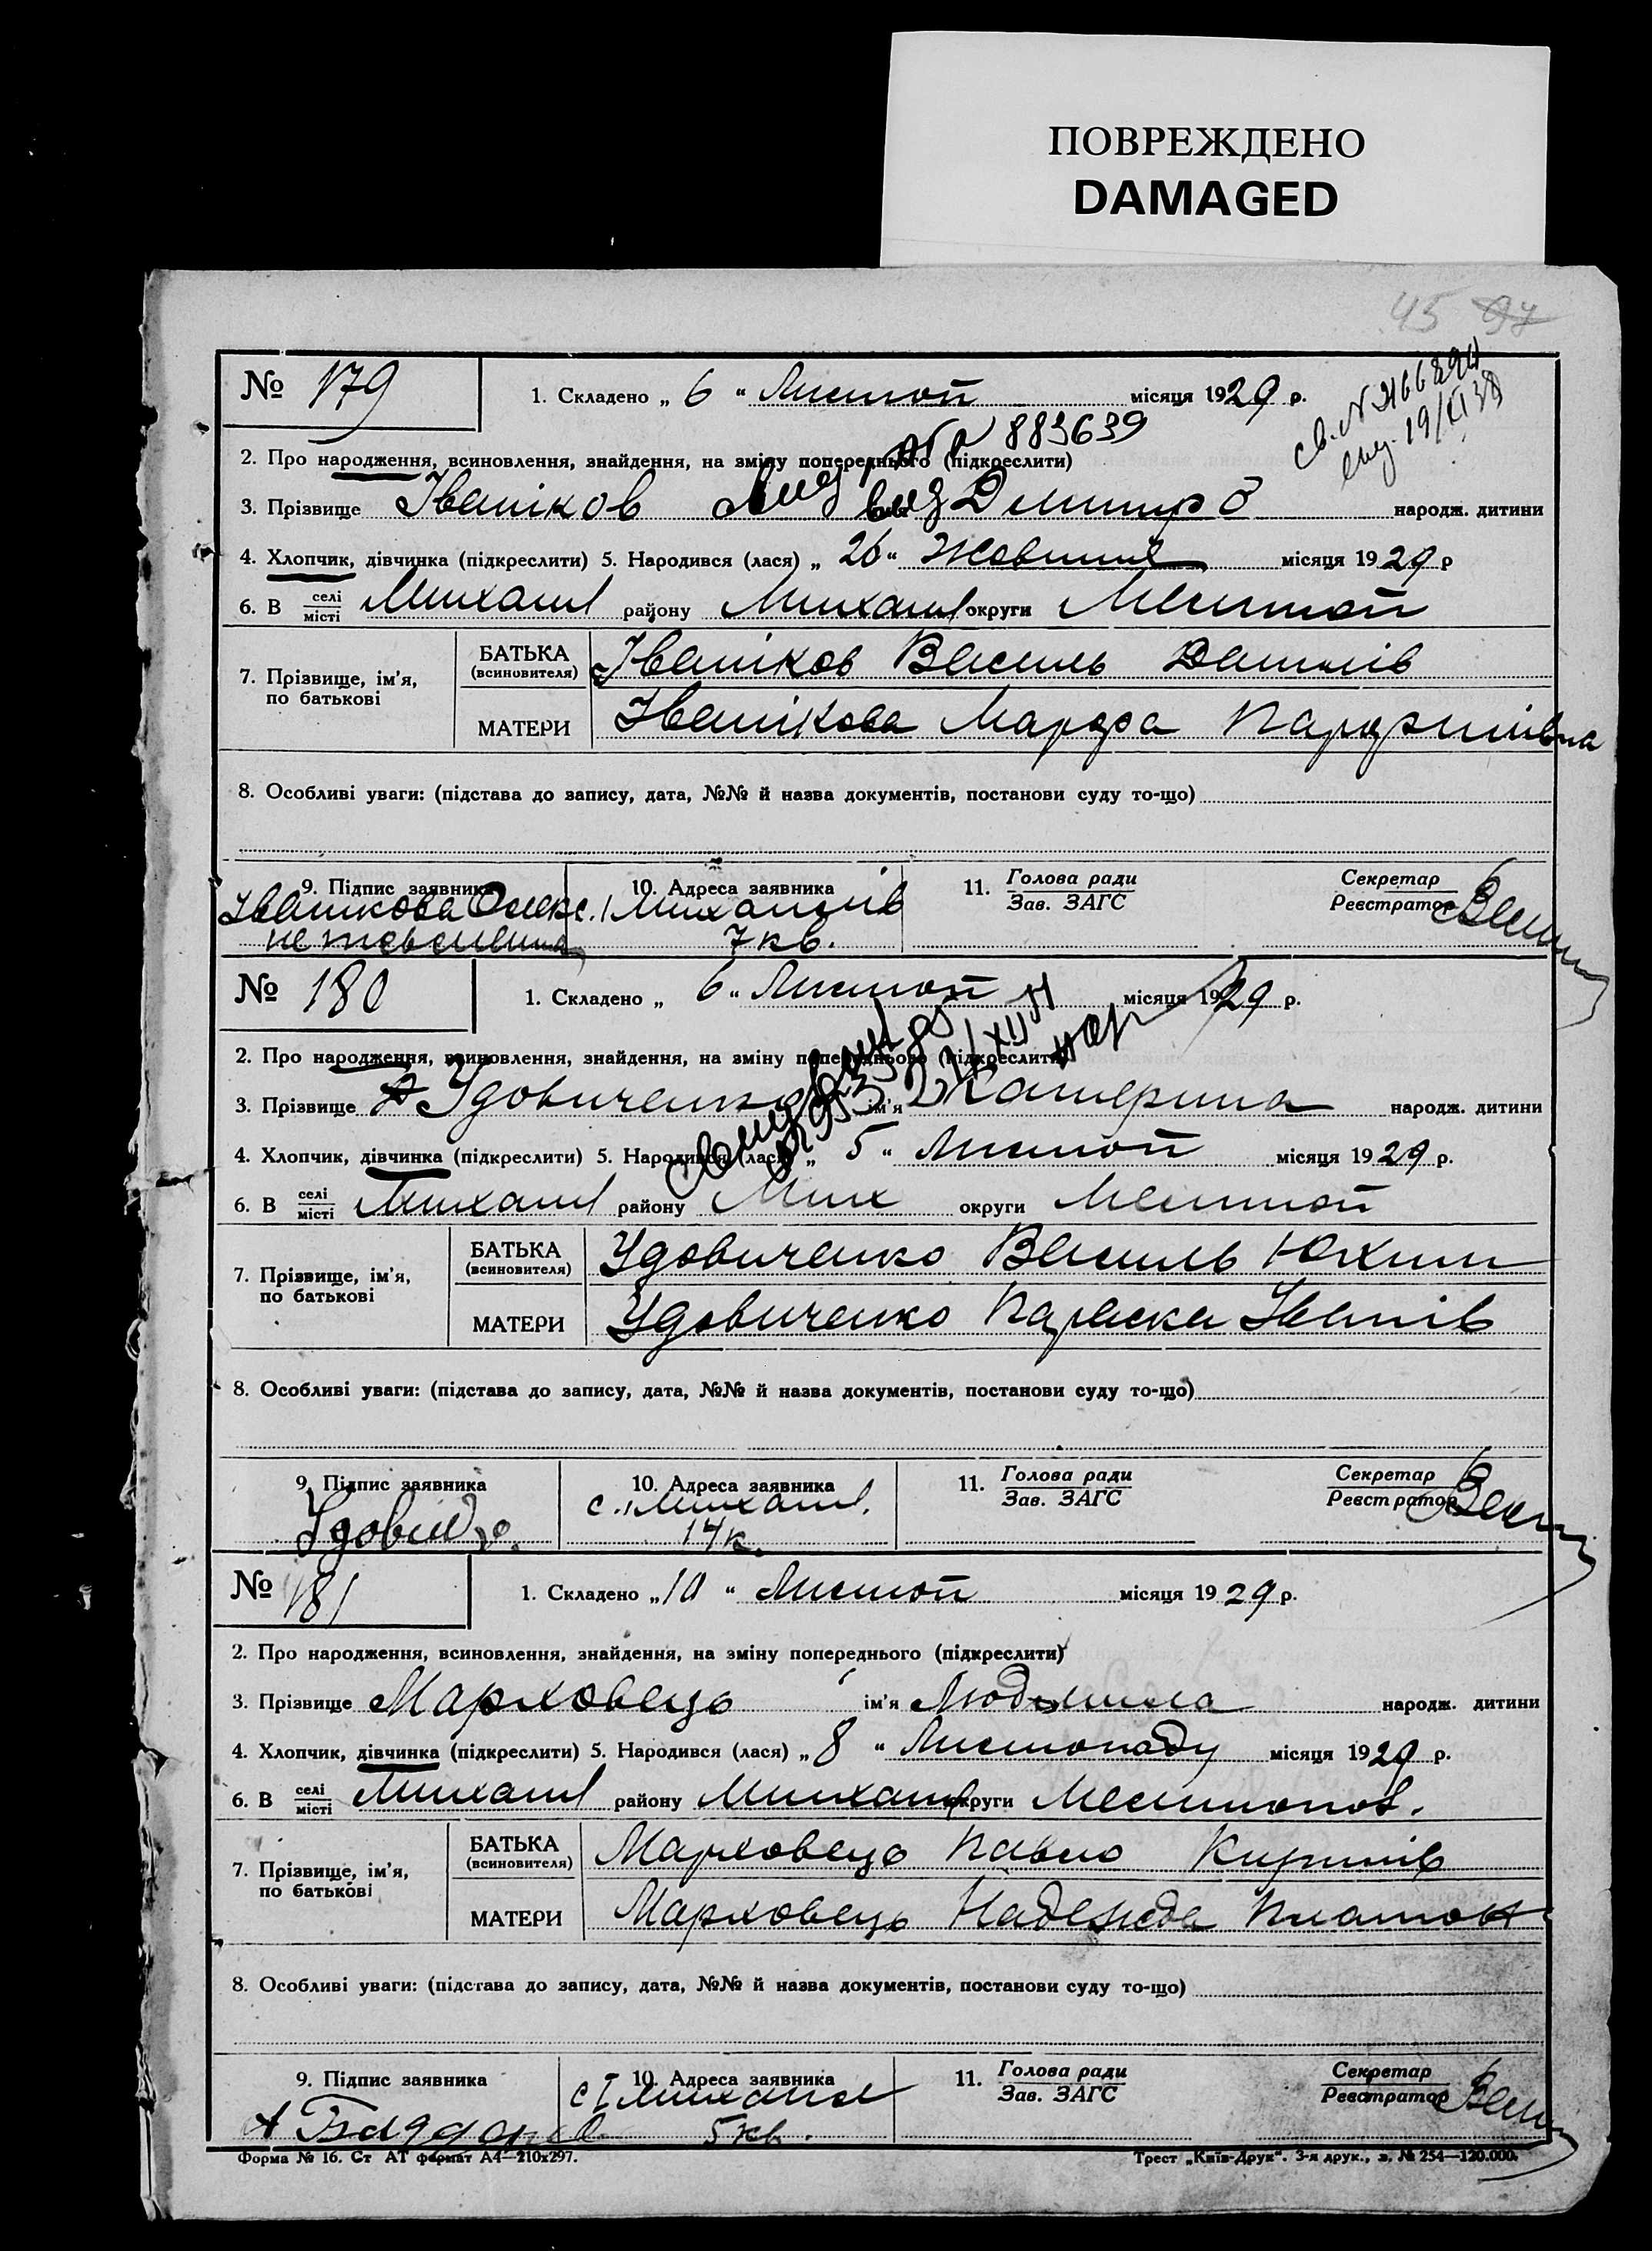 ПОВРЕЖДЕНО
DAMAGED
45 97
№ 179
1. Складено „ 6 “ Листоп місяця 1929 р.
883639
2. Про народження, всиновлення, знайдення, на зміну попереднього (підкреслити)
3. Прізвище Івашков Дмитро народж. дитини
4. Хлопчик, дівчинка (підкреслити) 5. Народився (лася) „ 26 “ Жовтня місяця 1929 р
6. В селі місті Михайл району Михайл округи Мелитоп
7. Прізвище, ім'я, по батькові
БАТЬКА (всиновителя) Івашков Василь Данилів
МАТЕРИ Івашкова Марфа Парфинівна
8. Особливі уваги: (підстава до запису, дата, №№ й назва документів, постанови суду то-що)
9. Підпис заявника 10. Адреса заявника 11. Голова ради Зав. ЗАГС Секретар Реєстратор
Івашкова Олекс. Михайлів
неписьменна 7 кв.
№ 180
1. Складено „ 6 “ Листоп місяця 1929 р.
2. Про народження, всиновлення, знайдення, на зміну попереднього (підкреслити)
3. Прізвище Удовиченко ім'я Катерина народж. дитини
4. Хлопчик, дівчинка (підкреслити) 5. Народився (лася) „ 5 “ Листоп місяця 1929 р.
6. В селі місті Михайл району Мих округи Мелитоп
7. Прізвище, ім'я, по батькові
БАТЬКА (всиновителя) Удовиченко Василь Юхим
МАТЕРИ Удовиченко Параска Іванів
8. Особливі уваги: (підстава до запису, дата, №№ й назва документів, постанови суду то-що)
9. Підпис заявника 10. Адреса заявника 11. Голова ради Зав. ЗАГС Секретар Реєстратор
с. Михайл.
14 к.
№ 181
1. Складено „ 10 “ Листоп місяця 1929 р.
2. Про народження, всиновлення, знайдення, на зміну попереднього (підкреслити)
3. Прізвище Марховець ім'я Людмила народж. дитини
4. Хлопчик, дівчинка (підкреслити) 5. Народився (лася) „ 8 “ Листопаду місяця 1929 р.
6. В селі місті Михайл району Михайл округи Мелитопов.
7. Прізвище, ім'я, по батькові
БАТЬКА (всиновителя) Марховець Павло Кирилів
МАТЕРИ Марховець Надежда Платон
8. Особливі уваги: (підстава до запису, дата, №№ й назва документів, постанови суду то-що)
9. Підпис заявника 10. Адреса заявника 11. Голова ради Зав. ЗАГС Секретар Реєстратор
с Михайл
5 кв.
Форма № 16. Ст АТ формат А4—210х297. Трест „Київ-Друк“. 3-я друк., з. № 254—120.000.